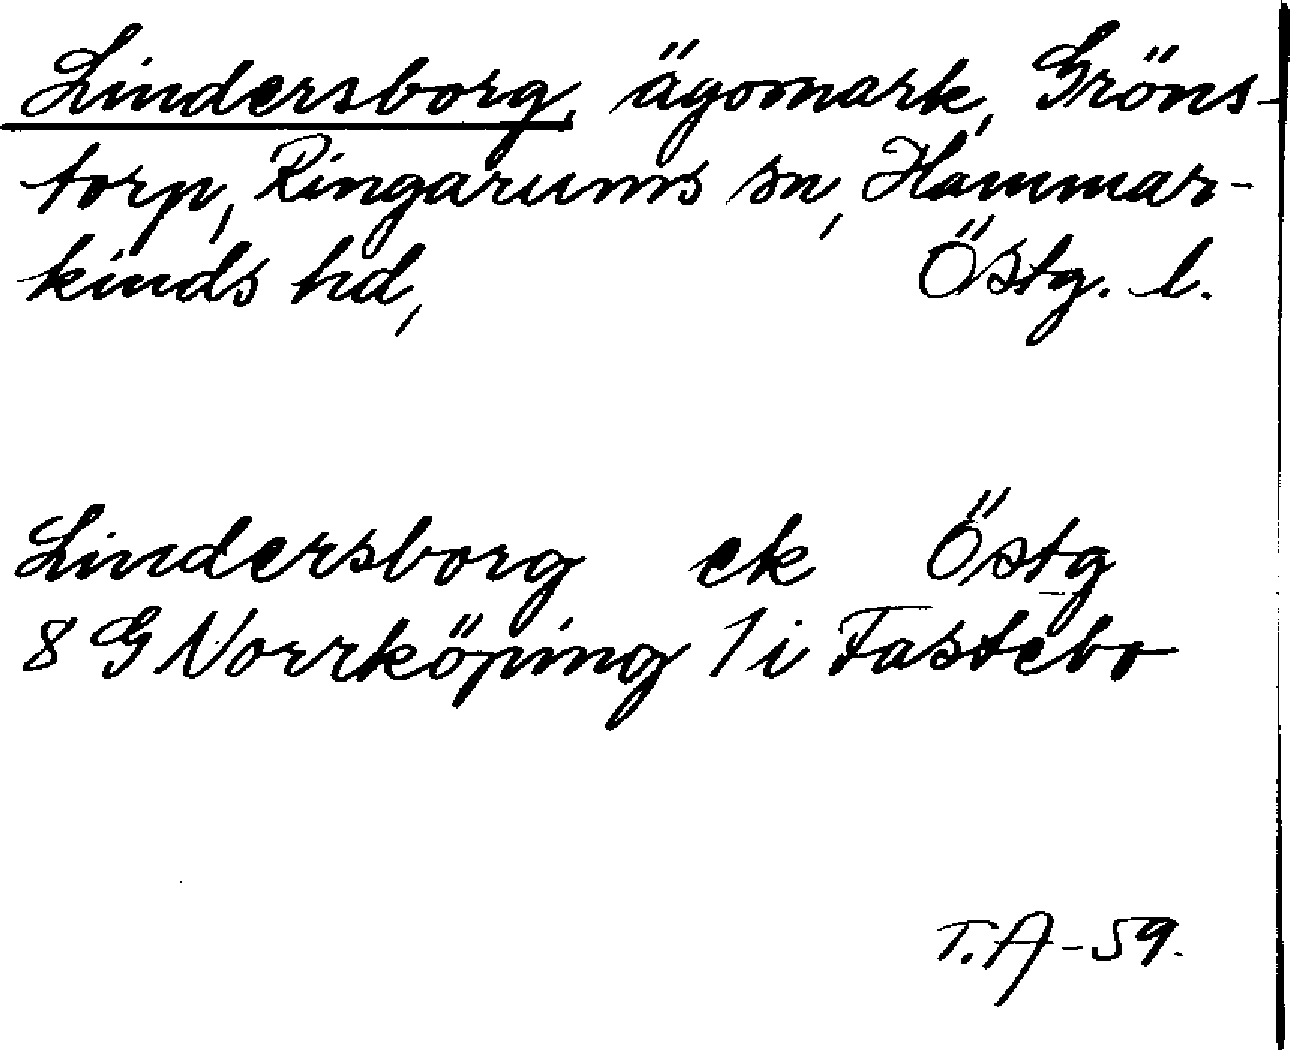 Lindersborg, ägomark, Gröns-
torp, Ringarums sn, Hammar-
kinds hd, Östg. l.
Lindersborg ek Östg
8 G Norrköping 1 i Fastebo
T.A-59.